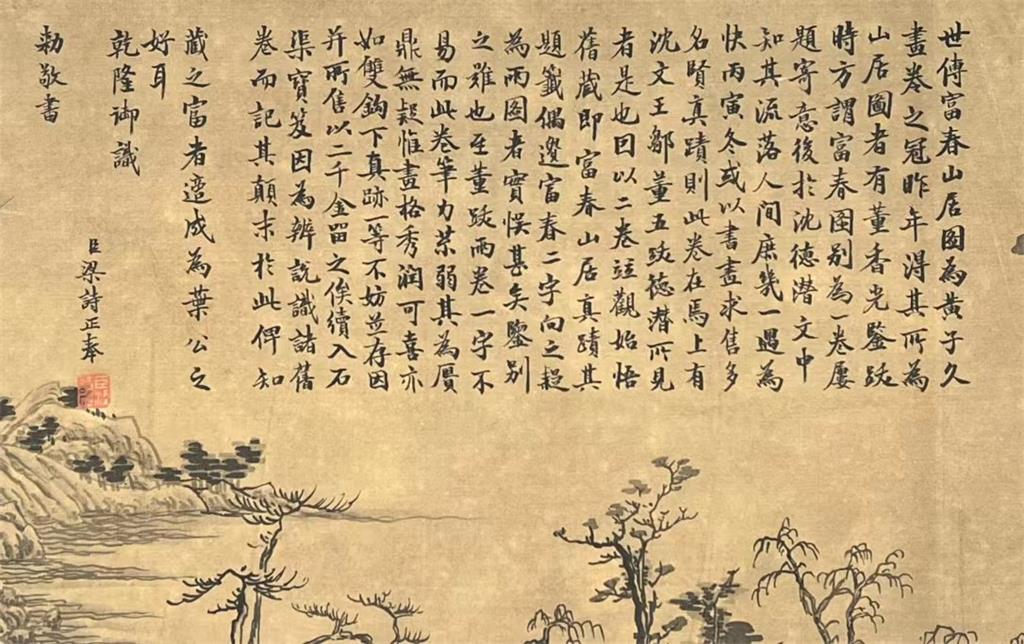 世傳富春山居圖為黃子久
畫卷之冠昨年得其所為
山居圖者有董香光鑒跋
時方謂富春圖別為一卷屢
題寄意後於沈德潛文中
知其流落人間庶幾一遇為
快丙寅冬或以書畫求售多
名賢真蹟則此卷在焉上有
沈文王鄒董五跋德潛所見
者是也因以二卷竝觀始悟
舊藏即富春山居真蹟其
題籤偶遺富春二字向之疑
為兩圖者實悞甚矣鑒別
之難也至董跋兩卷一字不
易而此卷筆力苶弱其為贗
鼎無疑惟畫格秀潤可喜亦
如雙鉤下真跡一等不妨並存因
并所售以二千金留之俟續入石
渠寶笈因為辨說識諸舊
卷而記其顛末於此俾知
藏之富者適成為葉公之
好耳
乾隆御識
臣梁詩正奉
勅敬書